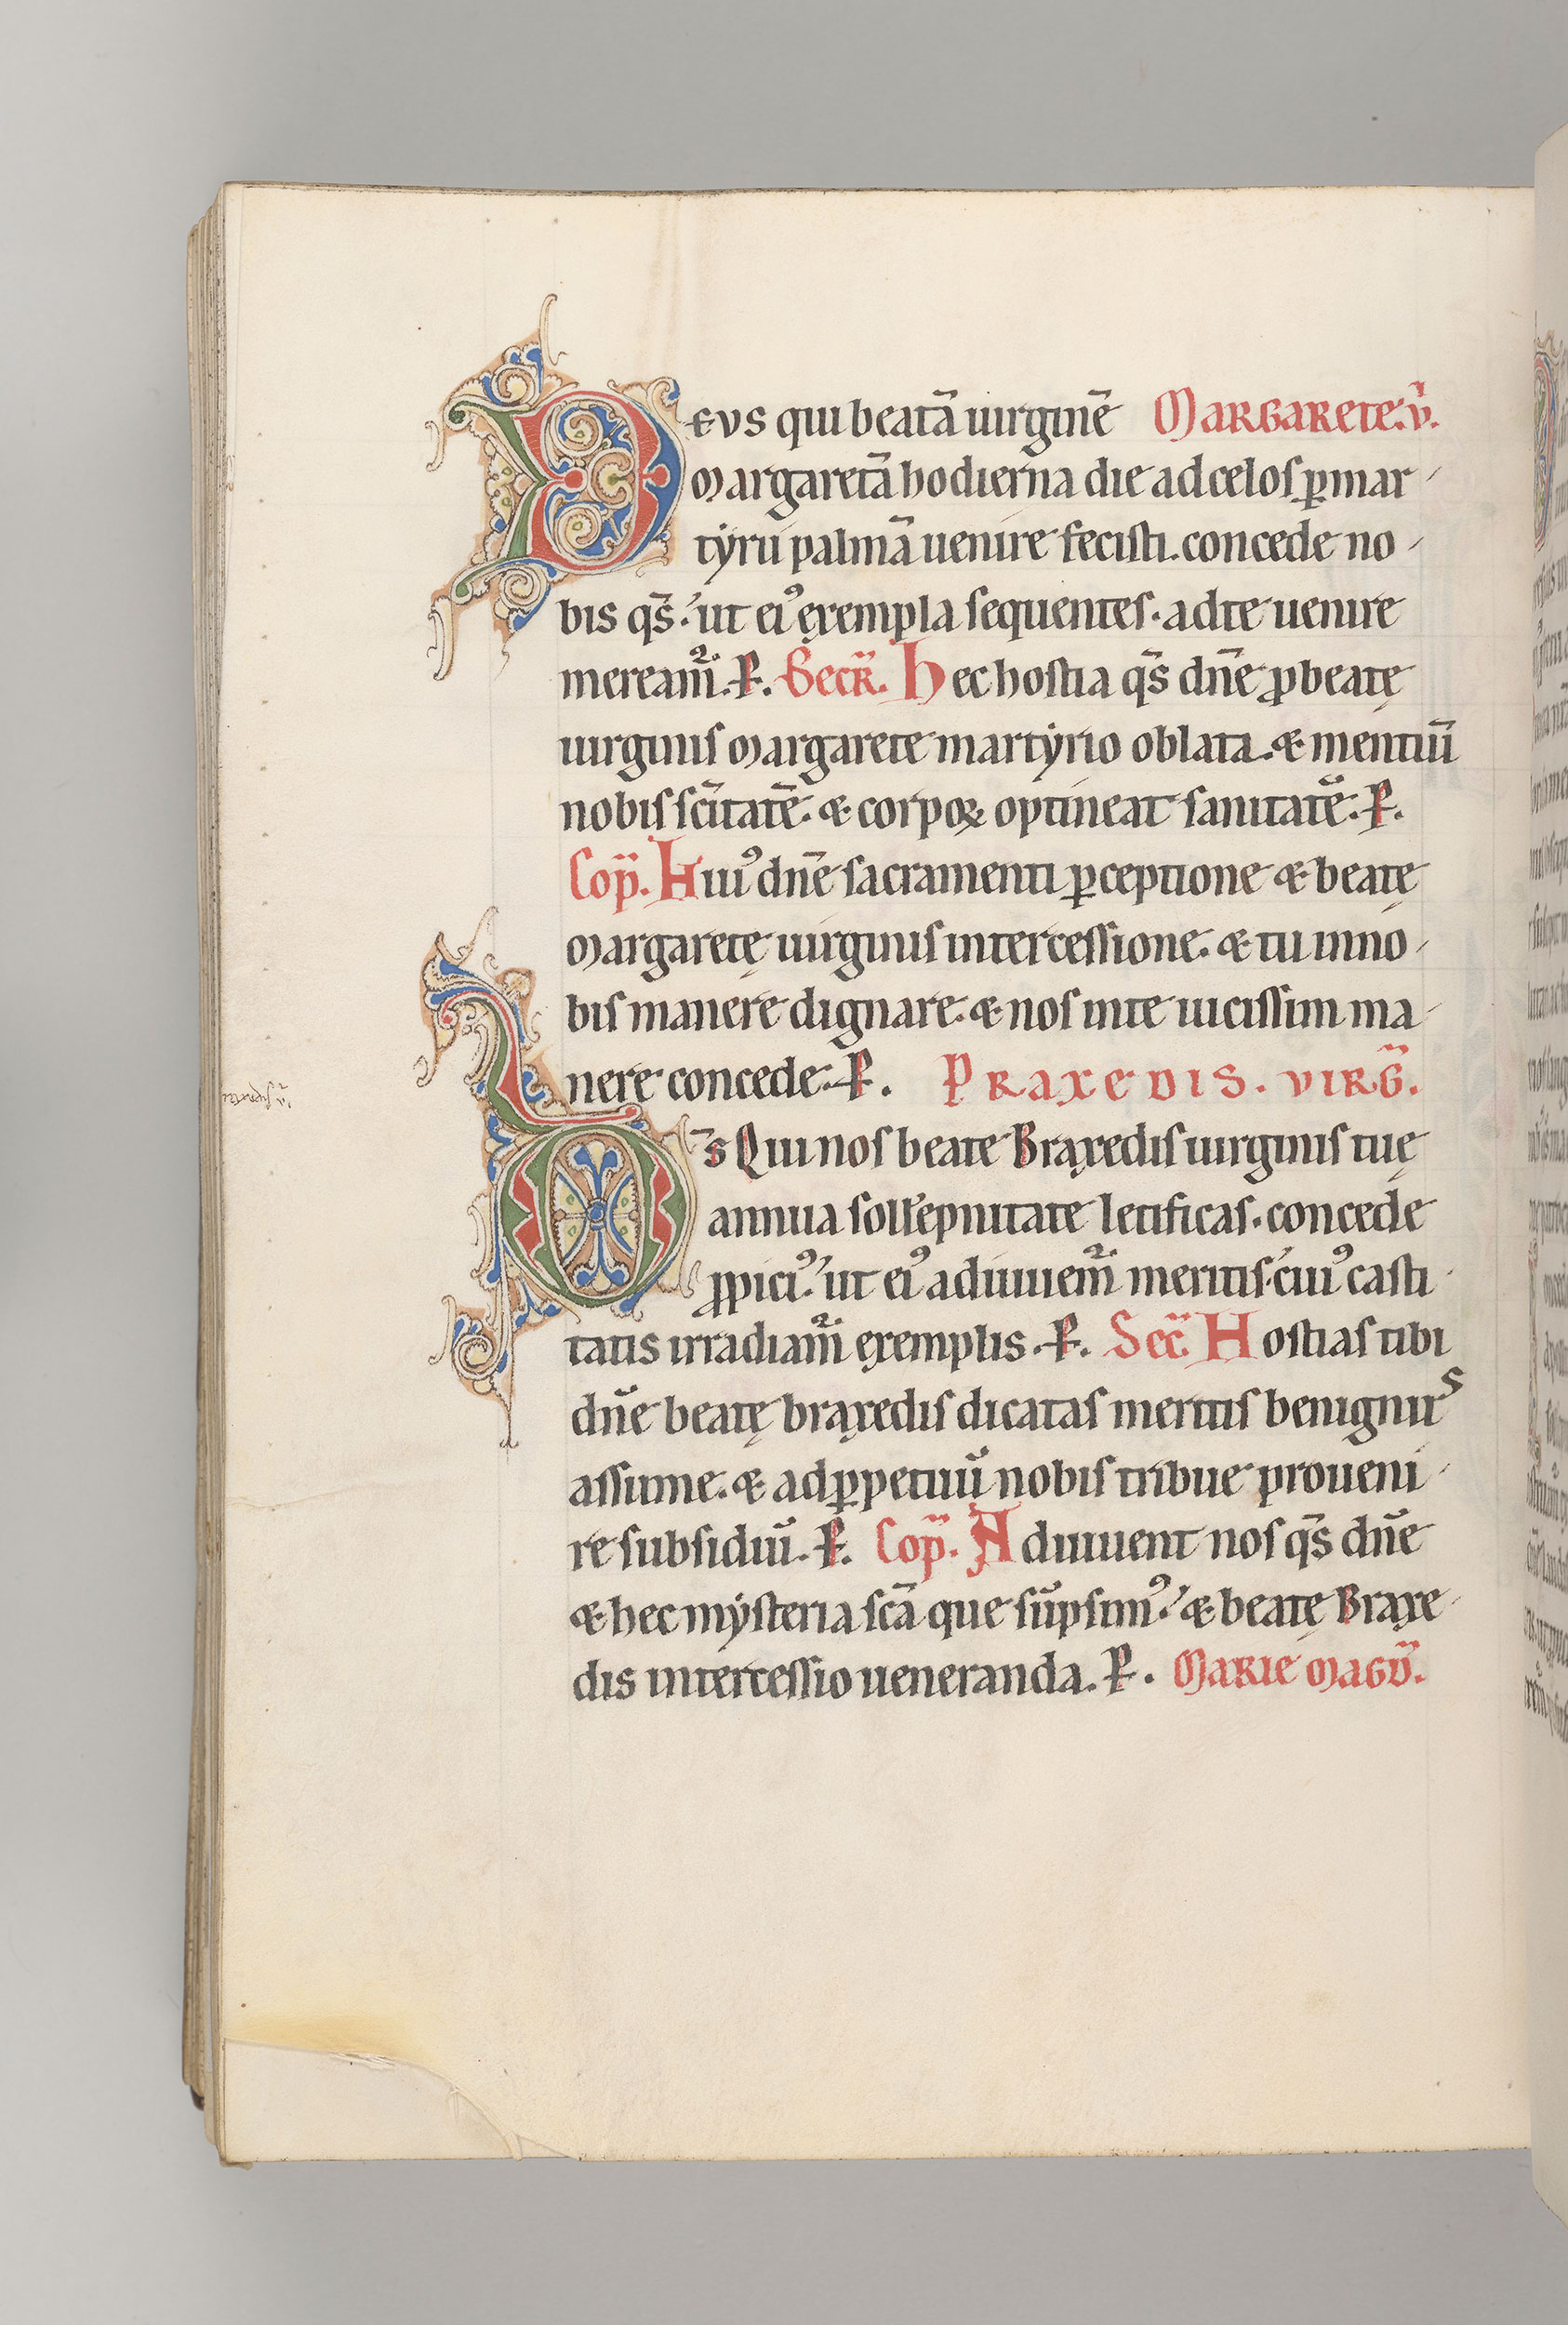 DEVS qui beatā uirginē MARGARETE. V̄.
Margaretā hodierna die ad celos p̄ mar-
tẏrii palmā uenire fecisti. concede no-
bis q̄s. ut ei⁹ exempla sequentes. ad te uenire
meream̄. P. SECR̄. Hec hostia q̄s dn̄e ꝓ beatę
uirginis Margarete martẏrio oblata. & mentiū
nobis sc̄itatē. & corpoꝝ optineat sanitatē. P.
Cōp. Hui⁹ dn̄e sacramenti ꝑceptione & beatę
Margaretę uirginis intercessione. & tu in no-
bis manere dignare. & nos in te uicissim ma-
nere concede. P. PRAXEDIS. VIRḠ.
D̄s Qui nos beate Braxedis uirginis tuę
annua sollēpnitate letificas. concede
ꝓpici⁹. ut ei⁹ adiuuem̄ meritis. cui⁹ casti-
tatis irradiam̄ exemplis. P. Sec̄. Hostias tibi
dn̄e beatę braxedis dicatas meritis benignus
assume. & ad ꝑpetuū nobis tribue proueni-
re subsidiū. P. Cōp. Adiuuent nos q̄s dn̄e
& hec mẏsteria sc̄a que sūpsim⁹. & beatę Braxe-
dis intercessio ueneranda. P. MARIE MAGD̄.